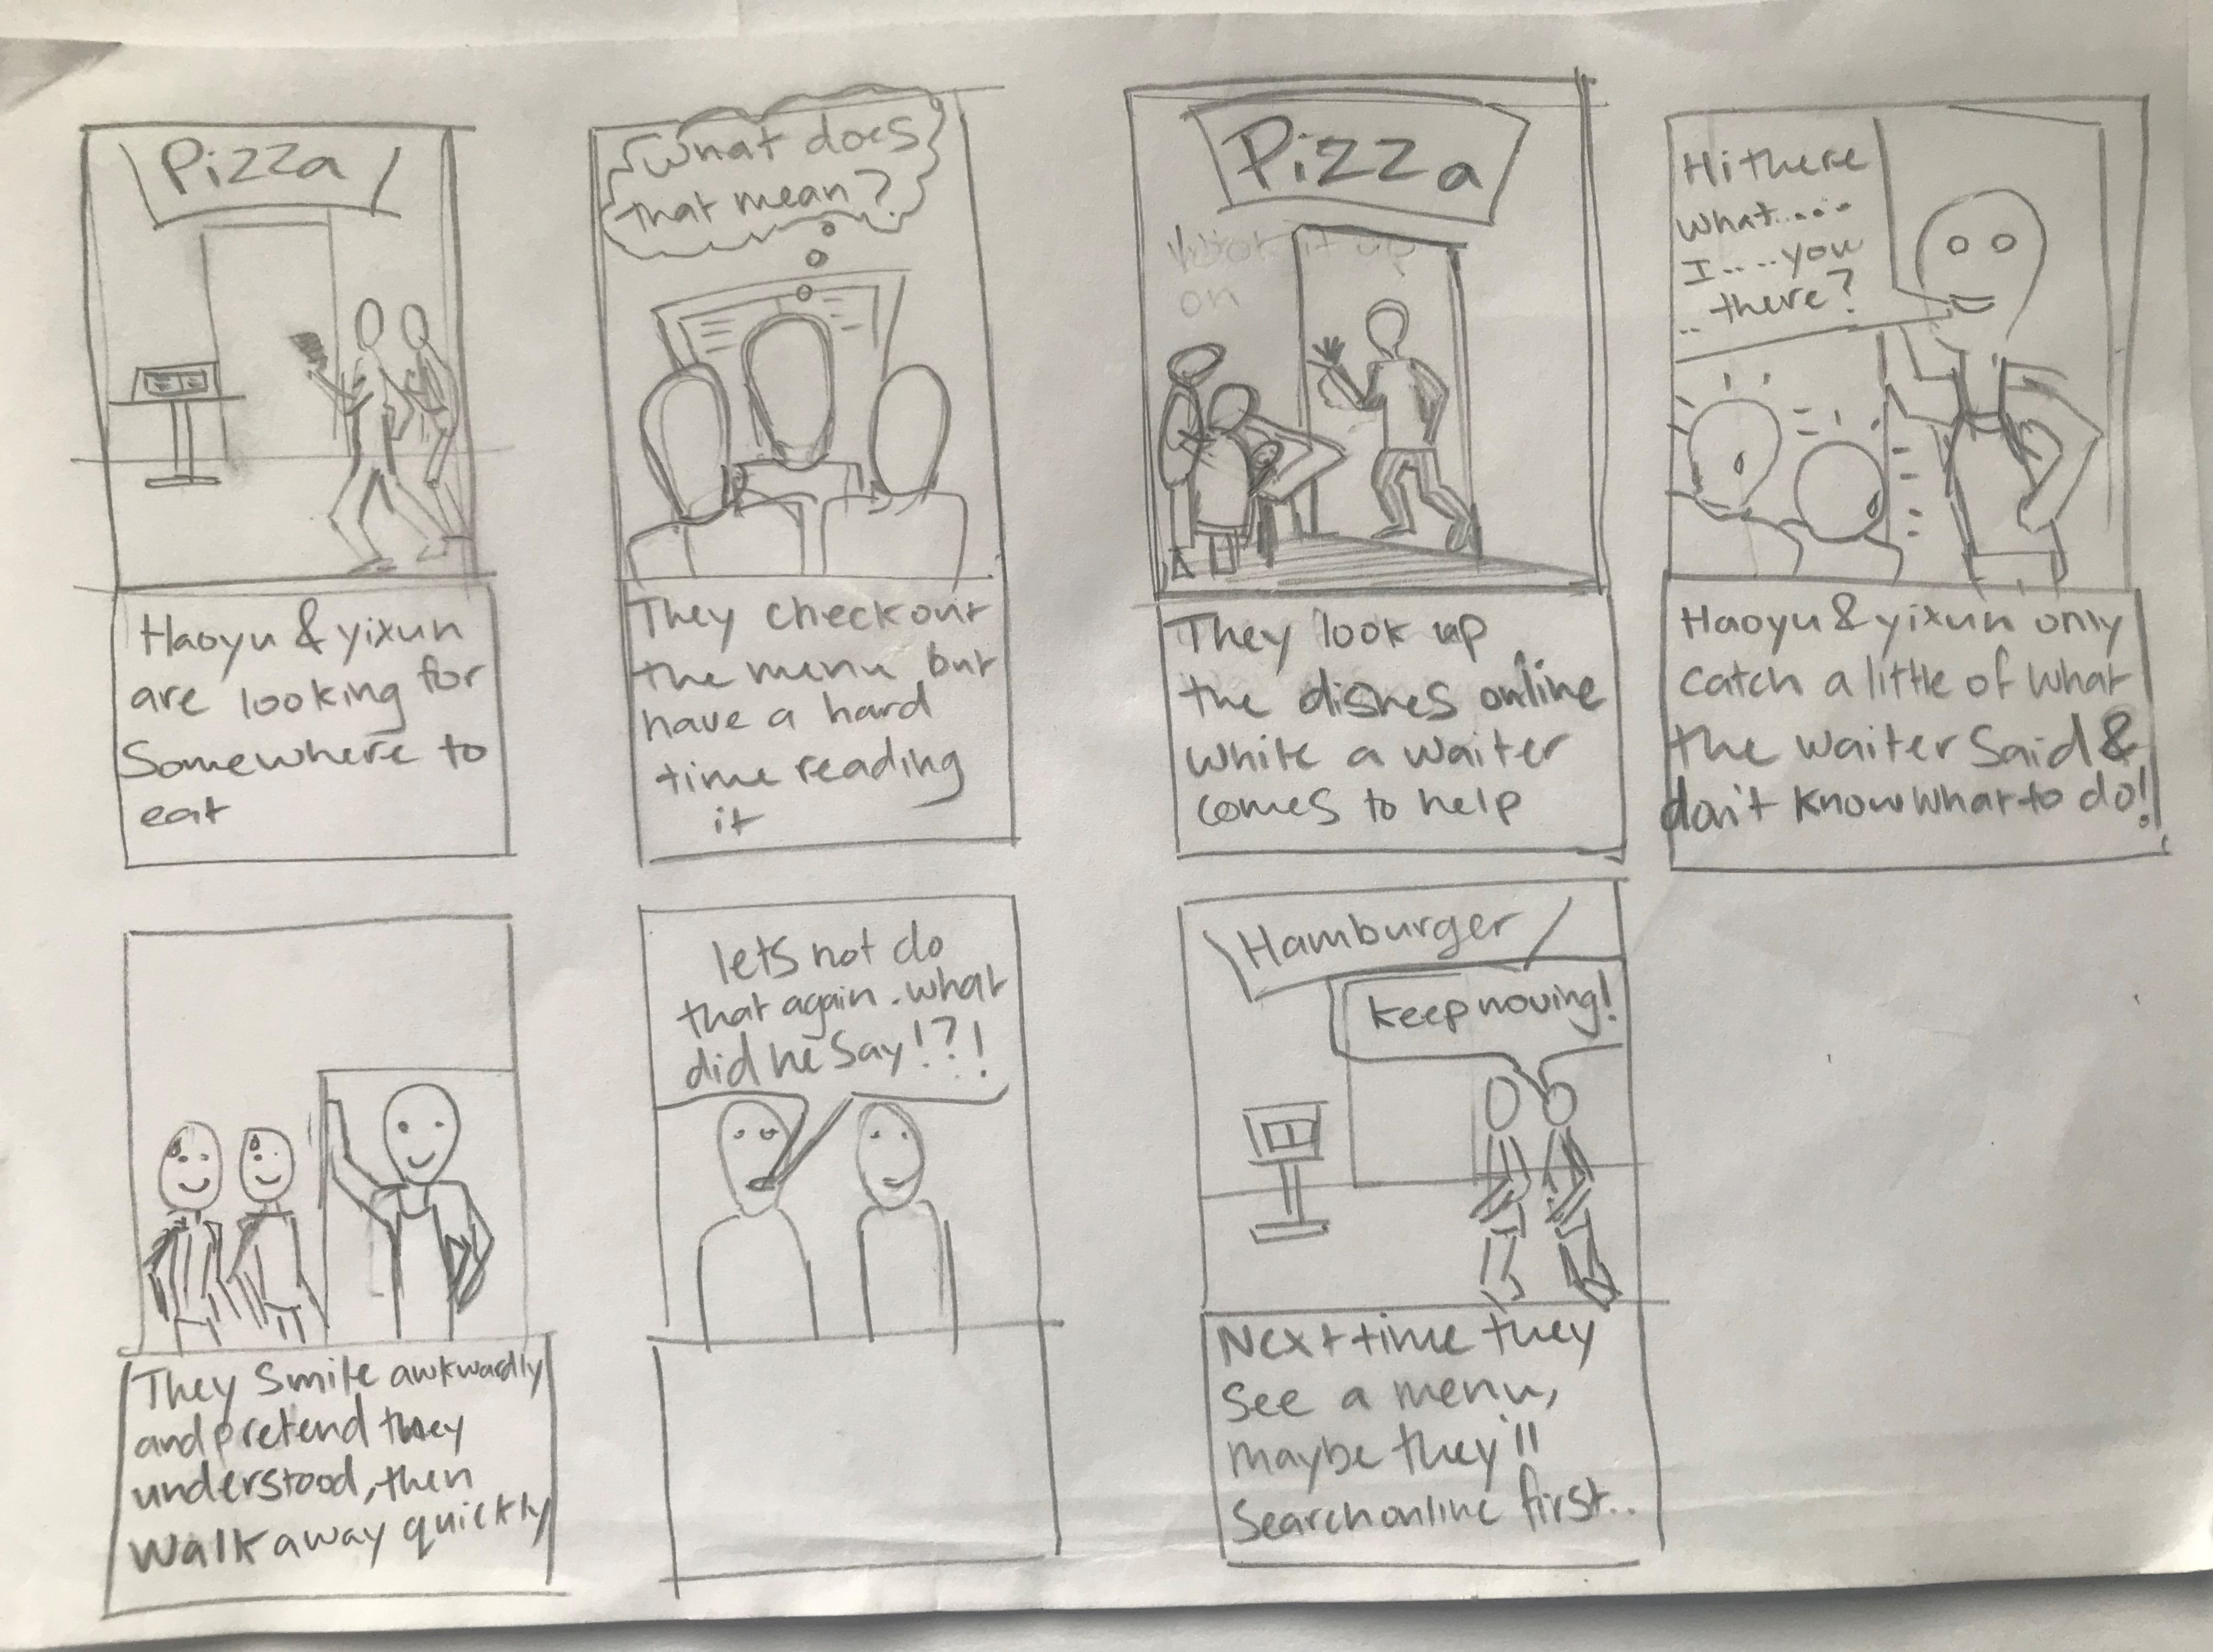 Pizza
Haoyu & yixun
are looking for
Somewhere to
eat
What does
that mean?
They check out
the menu but
have a hard
time reading
it
Pizza
look it up
on
They look up
the dishes online
while a waiter
comes to help
Hi there
what....
I....you
..there?
Haoyu & yixun only
catch a little of what
the waiter said &
don't know what to do!
They smile awkwardly
and pretend they
understood, then
walk away quickly
lets not do
that again. what
did he say!?!
Hamburger
keep moving!
Next time they
see a menu,
maybe they'll
search online first..